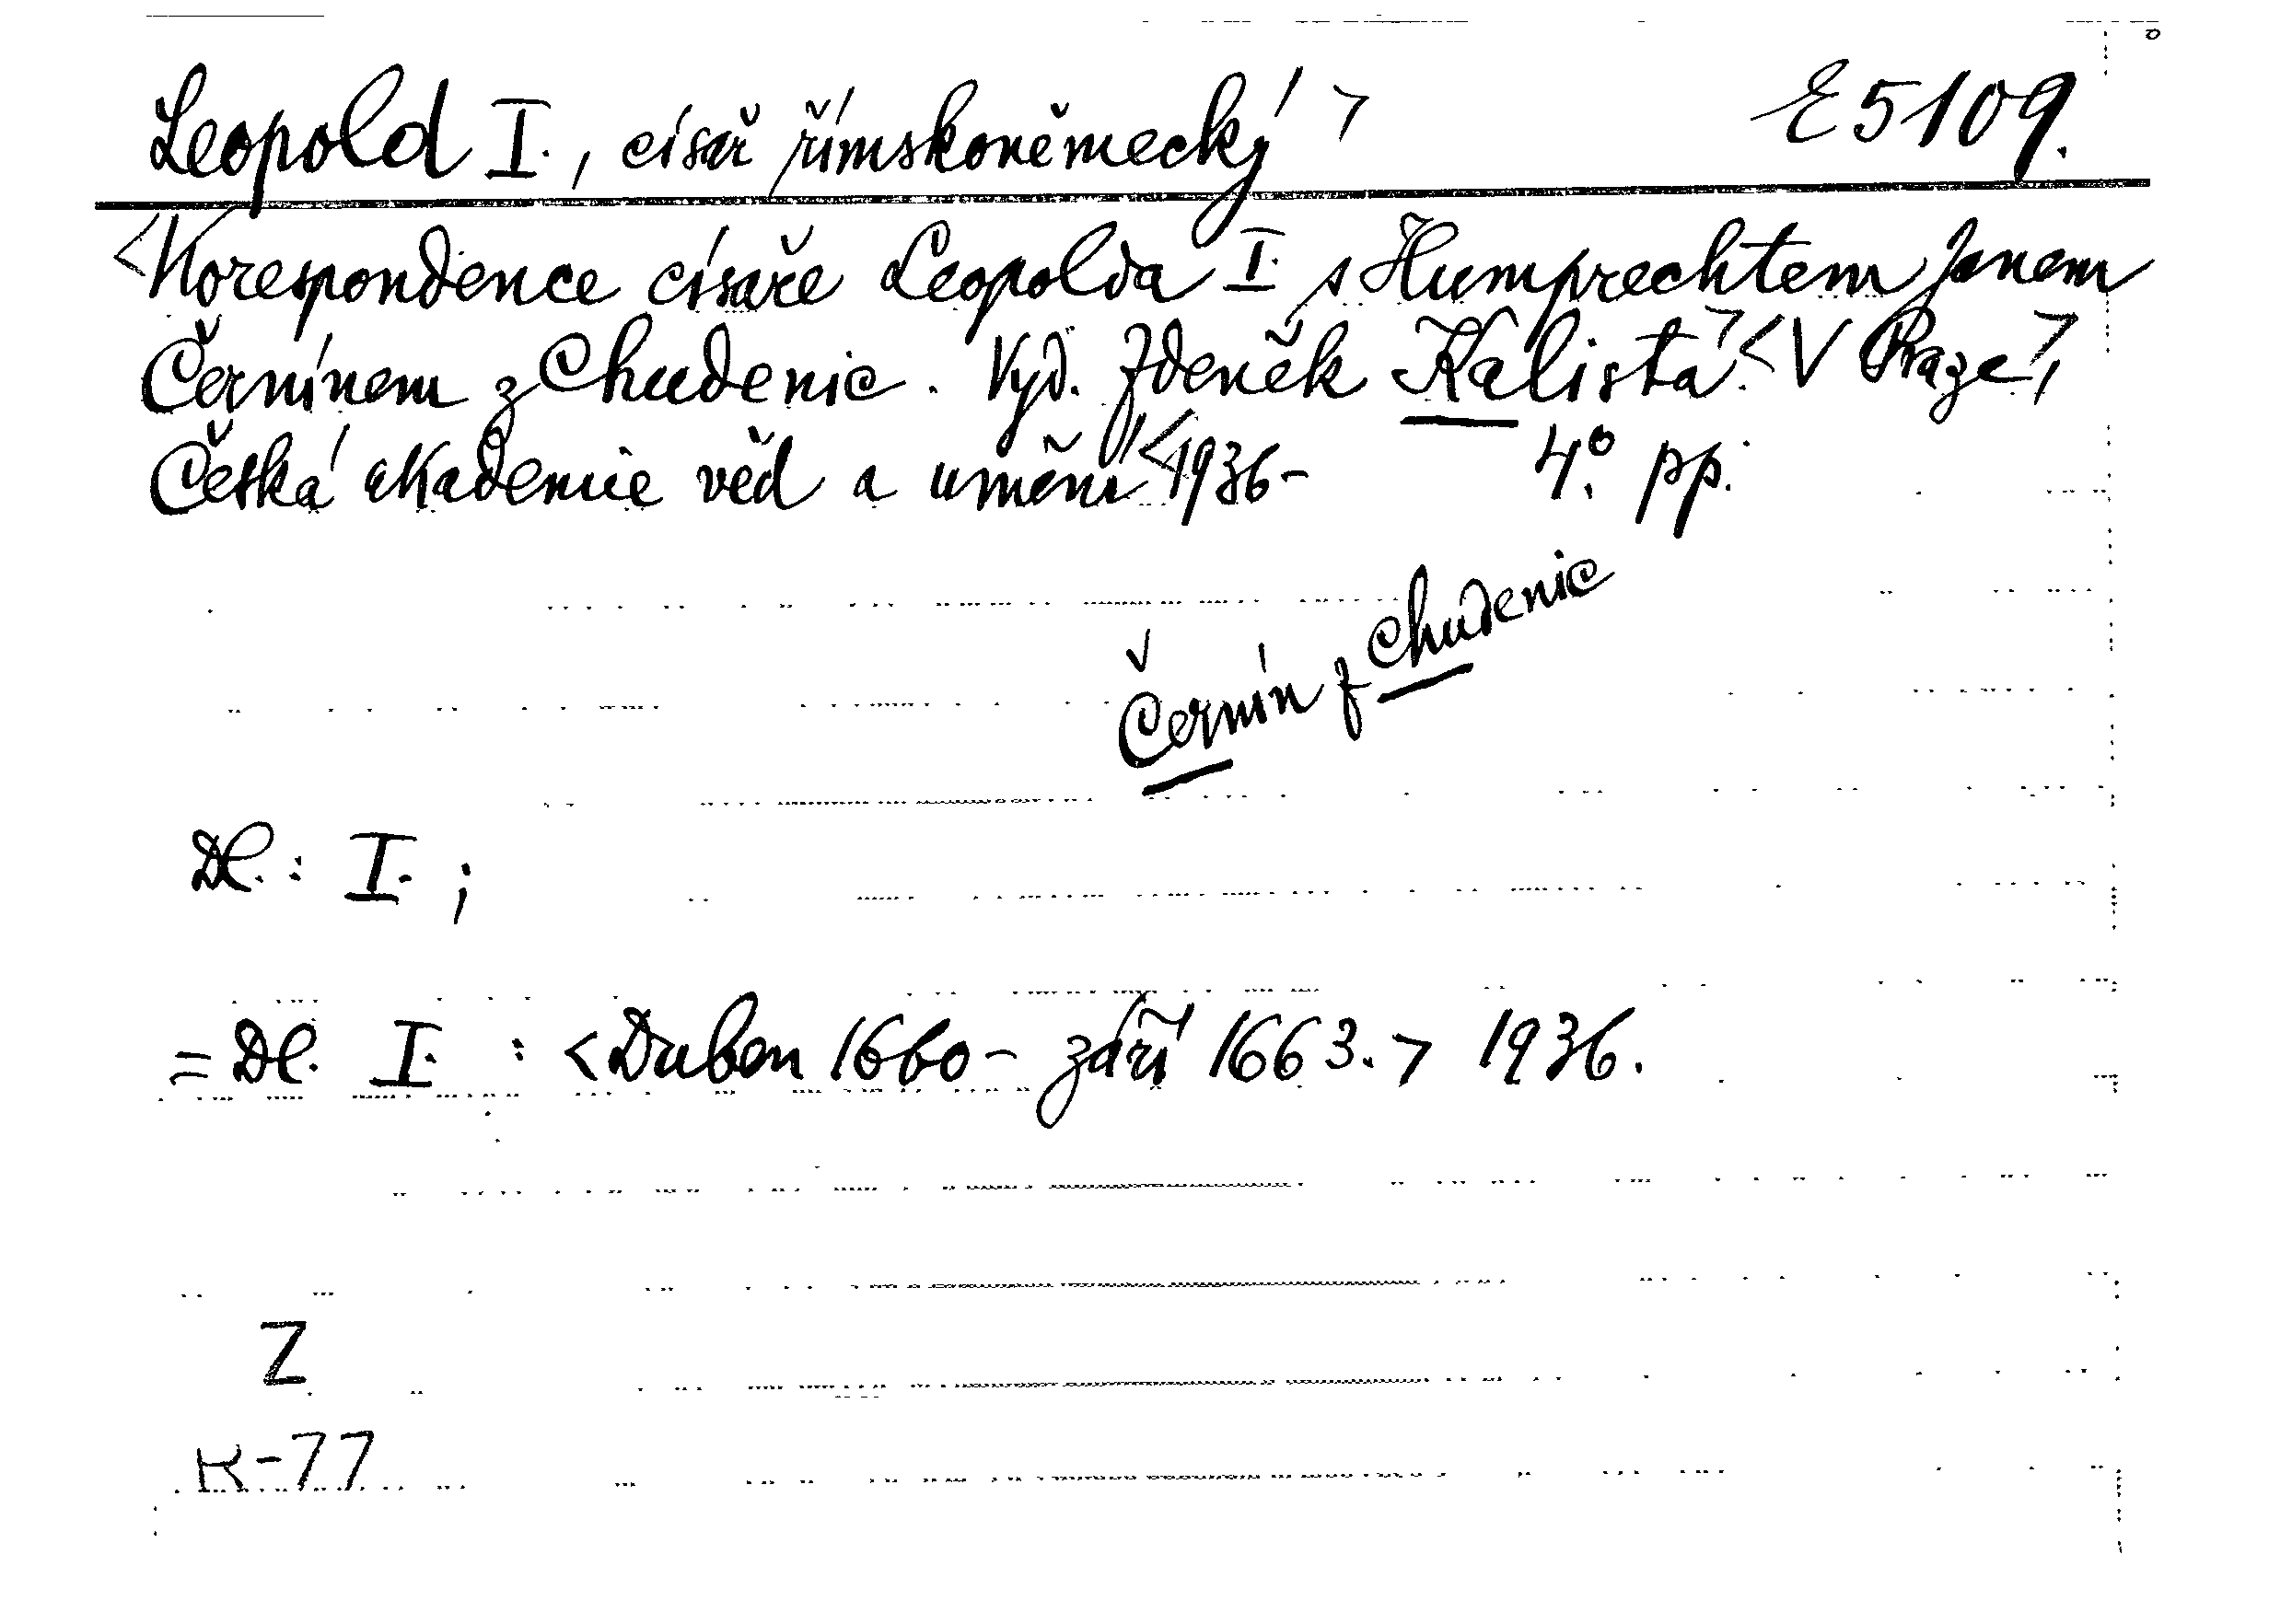 Leopold I., císař římskoněmecký > E 5109.
<Korespondence císaře Leopolda I. s Humprechtem Janem
Černínem z Chudenic. Vyd. Zdeněk Kalista.> <V Praze>,
Česká akademie věd a umění <1936- 4.° pp.
Černín z Chudenic
Dl.: I. ;
= Dl. I. : <Duben 1660 - září 1663.> 1936.
Z
K-77